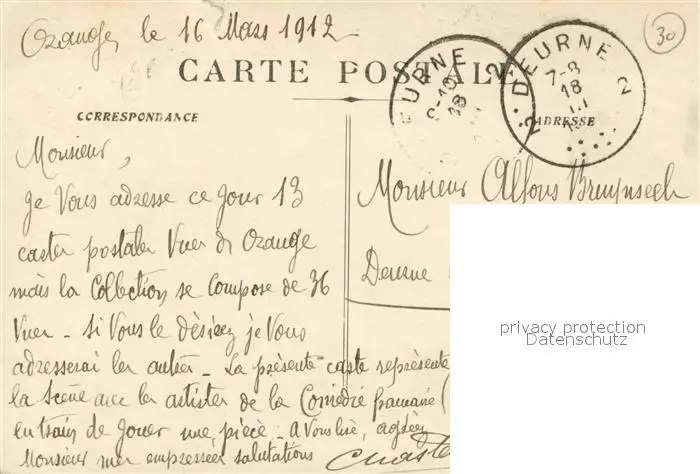 Orange, le 16 Mars 1912
30
CARTE POSTALE
DEURNE
7-8
18
III
2
2
CORRESPONDANCE
ADRESSE
Monsieur,
Je Vous adresse ce jour 13
cartes postales Vues d'Orange
mais la Collection se compose de 36
Vues - Si Vous le désirez je Vous
adresserai les autres - La présente carte représente
la Scène avec les artistes de la Comédie française (
en train de jouer une pièce - a Vous lire, agréez
Monsieur mes empressées salutations
Monsieur Alfons Bruynseels
Deurne
privacy protection
Datenschutz